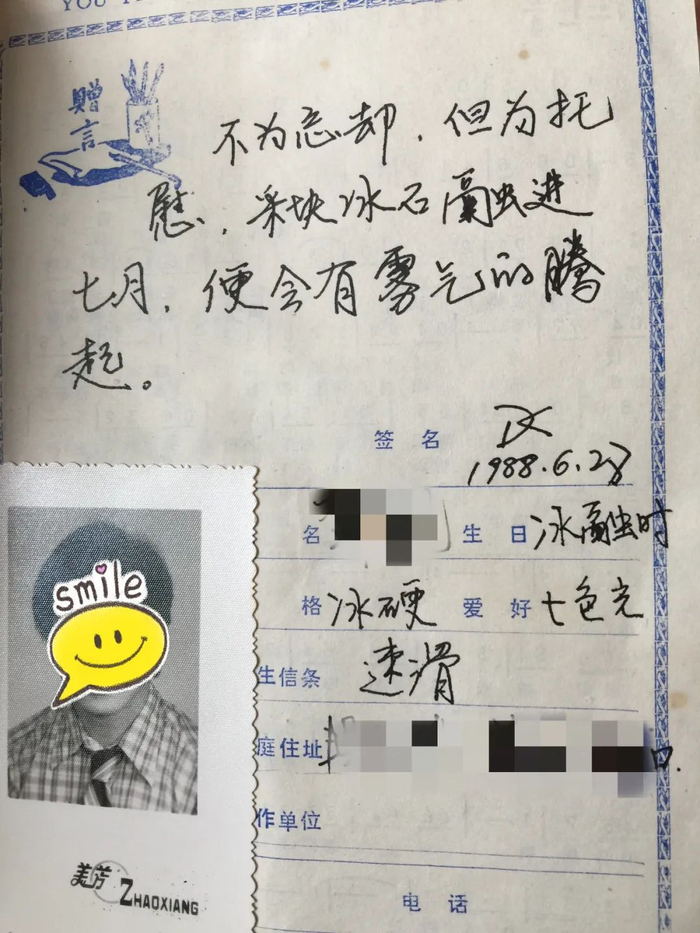 YOU
赠言
不为忘却，但为托
慰，采块冰石融进
七月，便会有雾气的腾
起。
签名
1988.6.28
名
生日 冰融时
格 冰硬 爱好 七色光
生信条 速滑
庭住址
作单位
电话
smile
美芳 ZHAOXIANG